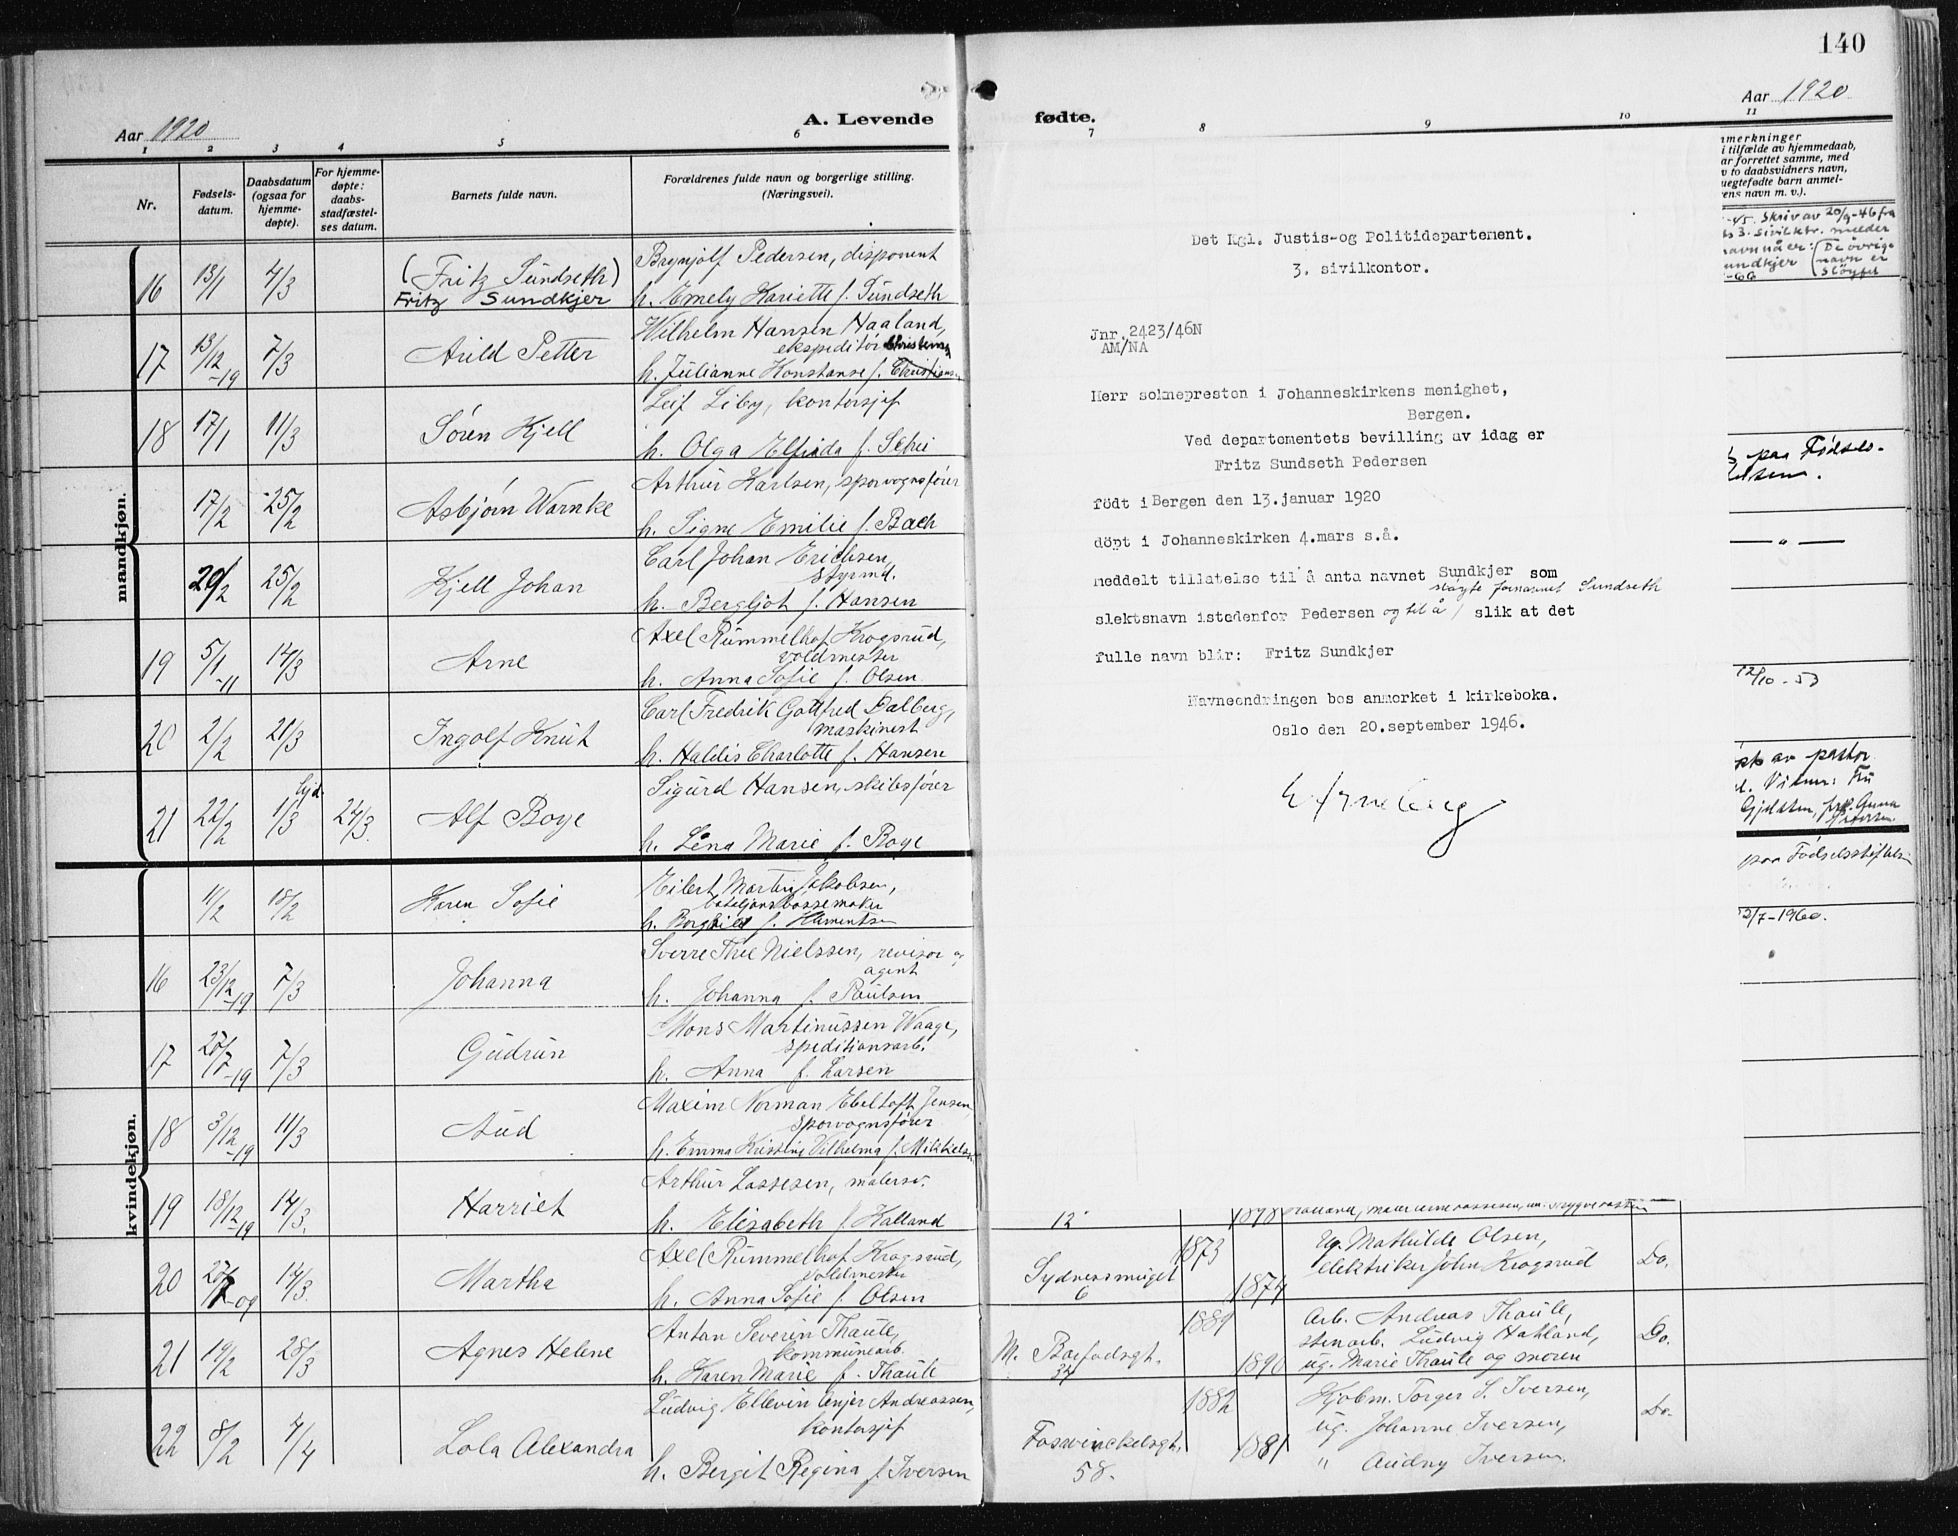 140
Aar 1920
A. Levende
fødte.
Aar 1920
1 2 3 4 5 6
7 8 9 10 11
Nr.
Fødsels-
datum.
Daabsdatum
(ogsaa for
hjemme-
døpte).
For hjemme-
døpte:
daabs-
stadfæstel-
ses datum.
Barnets fulde navn.
Forældrenes fulde navn og borgerlige stilling.
(Næringsvei).
mandkjøn.
16 13/1 4/3 (Fritz Sundseth) Brynjolf Pedersen, disponent
Fritz Sundkjer h. Emely Hariette f. Sundseth
17 13/12-19 7/3 Arild Petter Wilhelm Hansen Haaland,
ekspeditør
h. Julianne Konstanse f.
18 17/1 11/3 Søren Kjell Leif Liby, kontorsjef
h. Olga Elfrida f.
17/2 25/2 Asbjørn Warnke Arthur Karlsen, sporvognsfører
h. Signe Emilie f. Bach
20/2 25/2 Kjell Johan Carl Johan Erichsen,
styrmd.
h. Bergljot f. Hansen
19 5/1-11 14/3 Arne Axel Rummelhof Krogsrud,
voldmester
h. Anna Sofie f. Olsen
20 2/2 21/3 Ingolf Knut Carl Fredrik Gottfred Dalberg,
maskinest
h. Haldis Charlotte f. Hansen
21 22/2 1/3 24/3. Alf Boye Sigurd Hansen, skibsfører
h. Lena Marie f. Boge
kvindekjøn.
11/2 18/2 Karen Sofie Eilert Martin Jakobsen,
bataljonsbøssemaker
h. Borghild f.
16 23/12-19 7/3 Johanna Sverre Thee Nielssen, revisor og
agent
h. Johanna f. Paulsen
17 28/7-19 7/3 Gudrun Mons Martinussen Waage,
speditionsarb.
h. Anna f. Larsen
18 3/12-19 11/3 Aud Maxim Norman Ebeltoft Jensen,
sporvognsfører
h. Emma Kristine Vilhelma f.
19 18/12-19 14/3. Harriet Arthur Lassesen, malersv.
h. Elisabeth f. Halland
20 14/3. Martha Axel Rummelhof Krogsrud,
voldmester
h. Anna Sofie f. Olsen
21 19/2 28/3 Agnes Helene Anton Severin Thaule,
kommunearb.
h. Karen Marie f. Thaule
22 8/2 4/4 Lola Alexandra Ludvig Ellevin Andreassen,
kontorsjef
h. Bergit Regina f. Iversen
merkninger
i tilfælde av hjemmedaab,
ar forrettet samme, med
v to daabsvidners navn,
uegtefødte barn anmel-
ens navn m. v.).
-45. Skriv av 20/9-46 fra
3. sivilktr. melder
navn nå er: (De øvrige
undkjer (navn er
-66 sløyfet
Det Kgl. Justis-og Politidepartement.
3. sivilkontor.
Jnr. 2423/46N
AM/NA
Herr sokneprosten i Johanneskirkens menighet,
Bergen.
Ved departementets bevilling av idag er
Fritz Sundseth Pedersen
född i Bergen den 13. januar 1920
döpt i Johanneskirken 4. mars s.å.
meddelt tillatelse til å anta navnet Sundkjer som
sløyfe fornavnet Sundseth
slektsnavn istedenfor Pedersen og til å / slik at det
fulle navn blir: Fritz Sundkjer
Navneendringen bes anmerket i kirkeboka.
Oslo den 20.september 1946.
paa Fødsels-
12/10 - 53
av pastor
Vitner: Fru
paa Fødselsstiftelsen
2/7-1960.
12 1878
Sydnessmuget 6 1873 1874 Ug. Mathilde Olsen,
elektriker John Krogsrud Do.
M. Barfodsgt. 34 1889 1890 Arb. Andreas Thaule,
stenarb. Ludvig Hatland,
ug. Marie Thaule og moren Do.
Fosswinckelsgt. 58. 1882 1881 Kjøbm. Torger S. Iversen,
ug. Johanne Iversen,
" Audny Iversen. Do.